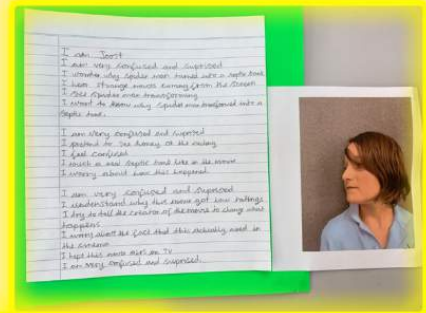 I am Joost
I am very confused and suprised
I wonder why spider man turned into a septic tank
I hear strange noises coming from the screen
I see spider man transforming
I want to know why spider man transformed into a
septic tank.
I am very confused and suprised
I pretend to
I feel confused
I touch a real septic tank like in the movie
I worry about how this happened.
I am very confused and suprised
I understand why this movie got low ratings
I try to tell the creator of the movie to change what
happens
I worry about the fact that this actually aired in
the cinema
I hope this movie airs on TV
I am very confused and suprised.